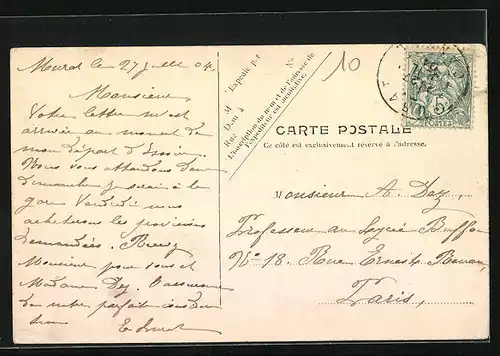 Murat le 27 juillet 04.
Monsieur
Votre lettre m'est
arrivée au moment de
mon départ d'
Nous vous attendons donc
dimanche je serai à la
gare Vendredi nous
achèterons les provisions
demandées. Recevez
Monsieur pour vous et
Madame Dez l'assurance
de notre parfaite considéra
tion
M
Expédié par
Dem à
Rue
N°
L'inscription du nom et de l'adresse de
l'Expéditeur est facultative.
10
POSTES
CARTE POSTALE
Ce côté est exclusivement réservé à l'adresse.
Monsieur A. Dez,
Professeur au Lycée Buffon
N° 18. Rue Ernest Renan,
Paris,